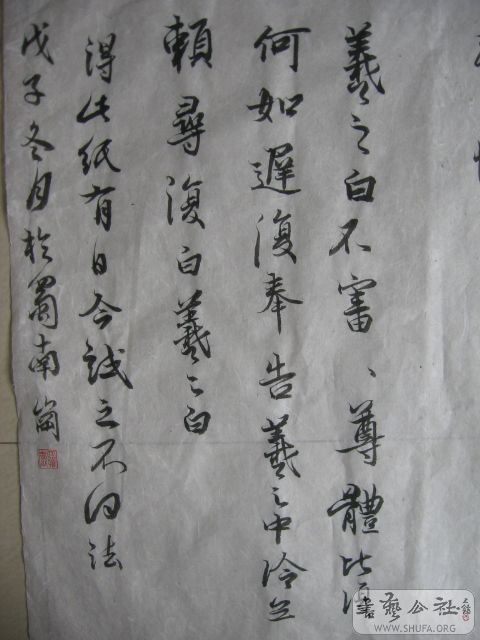 羲之白不審、尊體比復
何如遲復奉告羲之中冷無
賴尋復白羲之白
得此紙有日今試之不得法
戊子冬月於蜀南崗
書藝公社
WWW.SHUFA.ORG